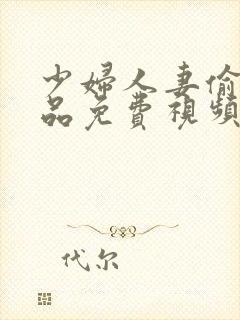 少婦人妻偷
品免費視頻
代尔